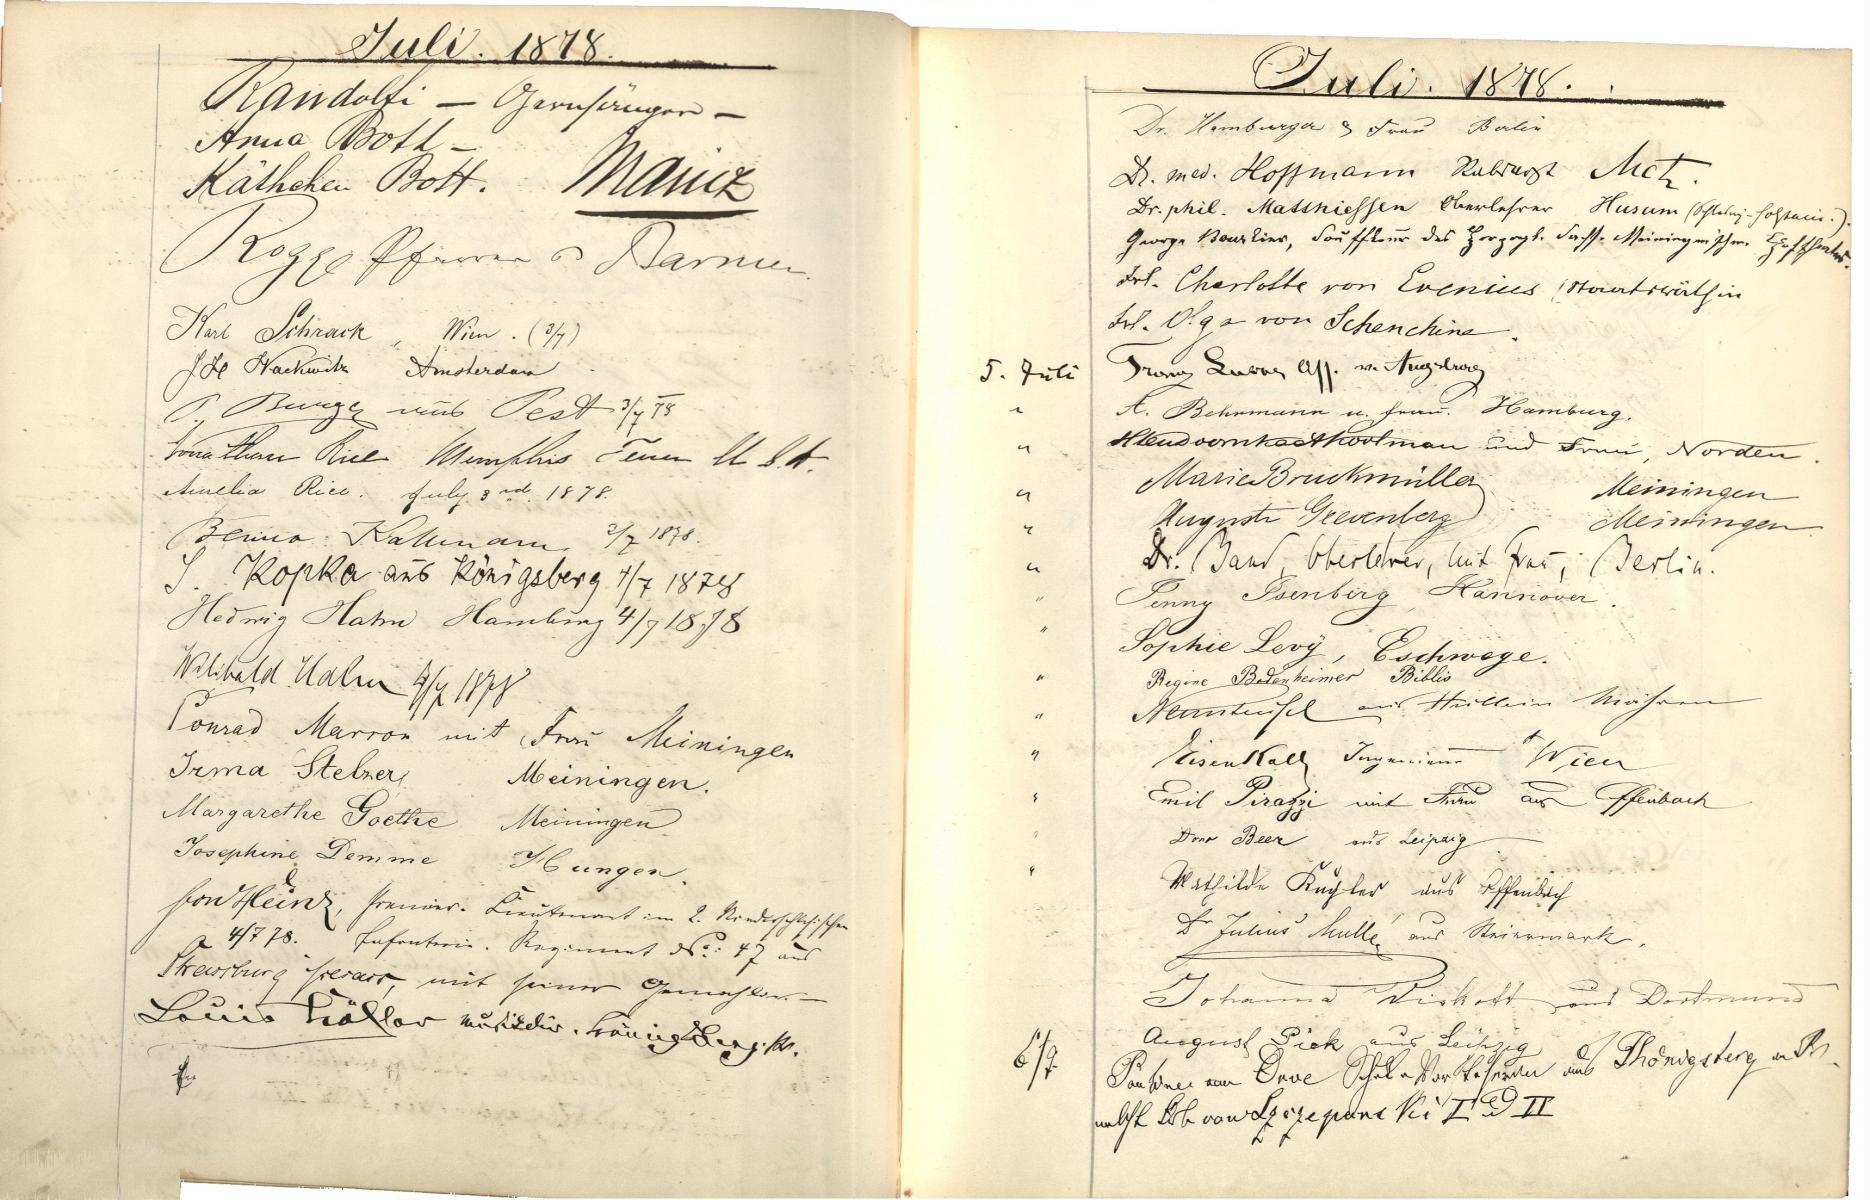 Juli. 1878.
Randolfi — Opernsänger —
Anna Bott —
Käthchen Bott. Mainz
Rogge Pfarrer Barmen.
Karl Schrack, Wien. (3/7)
Amsterdam
P. Burger aus Pest 3/7 78
Jonathan Rice Memphis Tenn U.S.A.
Amelia Rice. July 3rd. 1878.
Benno Kallmann. 2/7 1878.
S. Kopka aus Königsberg 4/7 1878
Hedwig Hahn Hamburg 4/7 1878
Wilibald Hahn 4/7 1878
Conrad Marron mit Frau Meiningen
Irma Stelzer, Meiningen.
Margarethe Goethe Meiningen
Josephine Demme Hungen.
von Heinz, Premier-Lieutenant im 2. Niederschlesischen
4/7 78. Infanterie-Regiment No: 47 aus
Strassburg mit seiner Gemahlin —
Louis Köhler Musikdir. Königsberg. Pr.
Juli. 1878.
Dr. Hamburger & Frau Berlin
Dr. med. Hoffmann Stabsarzt Metz.
Dr. phil. Matthiessen Oberlehrer Husum (Schleswig-Holstein.).
George Souffleur des Herzogl. Sachs. Meiningen'schen Hoftheaters.
Frl. Charlotte von Evenius
Frl. Olga von Schenchine.
5. Juli Franz v. Augsburg
" A. Behrmann u. Frau. Hamburg.
" und Frau, Norden.
" Marie Bruckmüller Meiningen
" Auguste Grevenberg Meiningen
" Dr. Band, Oberlehrer, mit Frau, Berlin.
" Jenny Isenberg, Hannover.
" Sophie Levÿ, Eschwege.
" Regine Bodenheimer Biblis
" Neunteufel aus Hullein Mähren
" Eisenkolb Ingenieur Wien
" Emil Pirazzi mit Frau aus Offenbach
" Beer aus Leipzig
" Mathilde Kugler aus Offenbach
Dr Julius Mulle aus Steiermark.
Johanna Wiskott aus Dortmund
August Pick aus Leipzig
6/7 aus Königsberg in Pr.
I II